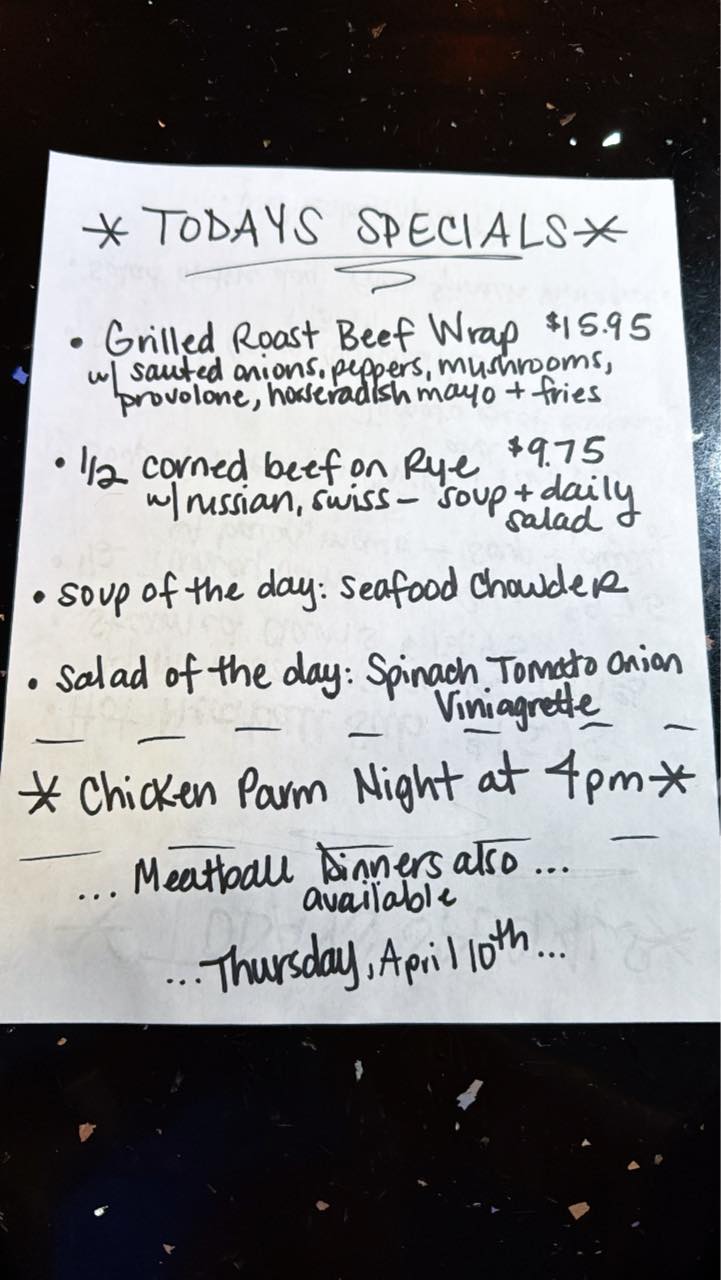 * TODAYS SPECIALS *
• Grilled Roast Beef Wrap $15.95
w/ sauted onions, peppers, mushrooms,
provolone, horseradish mayo + fries
• 1/2 corned beef on Rye $9.75
w/ russian, swiss – soup + daily
salad
• soup of the day: Seafood Chowder
• Salad of the day: Spinach Tomato Onion
Viniagrette
* Chicken Parm Night at 4pm *
... Meatball Dinners also ...
available
... Thursday, April 10th ...